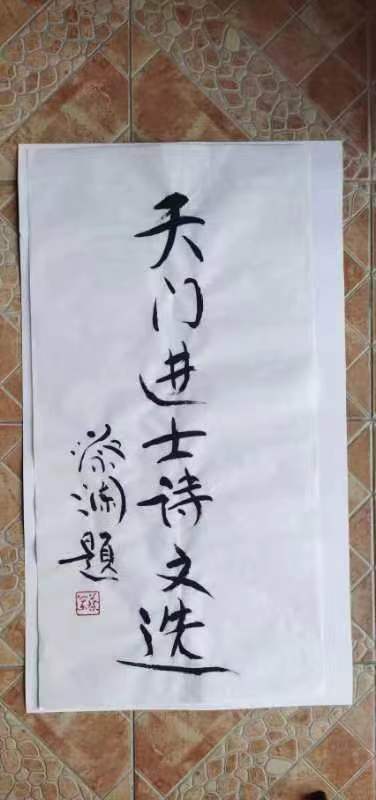 天门进士诗文选
蔡澜题